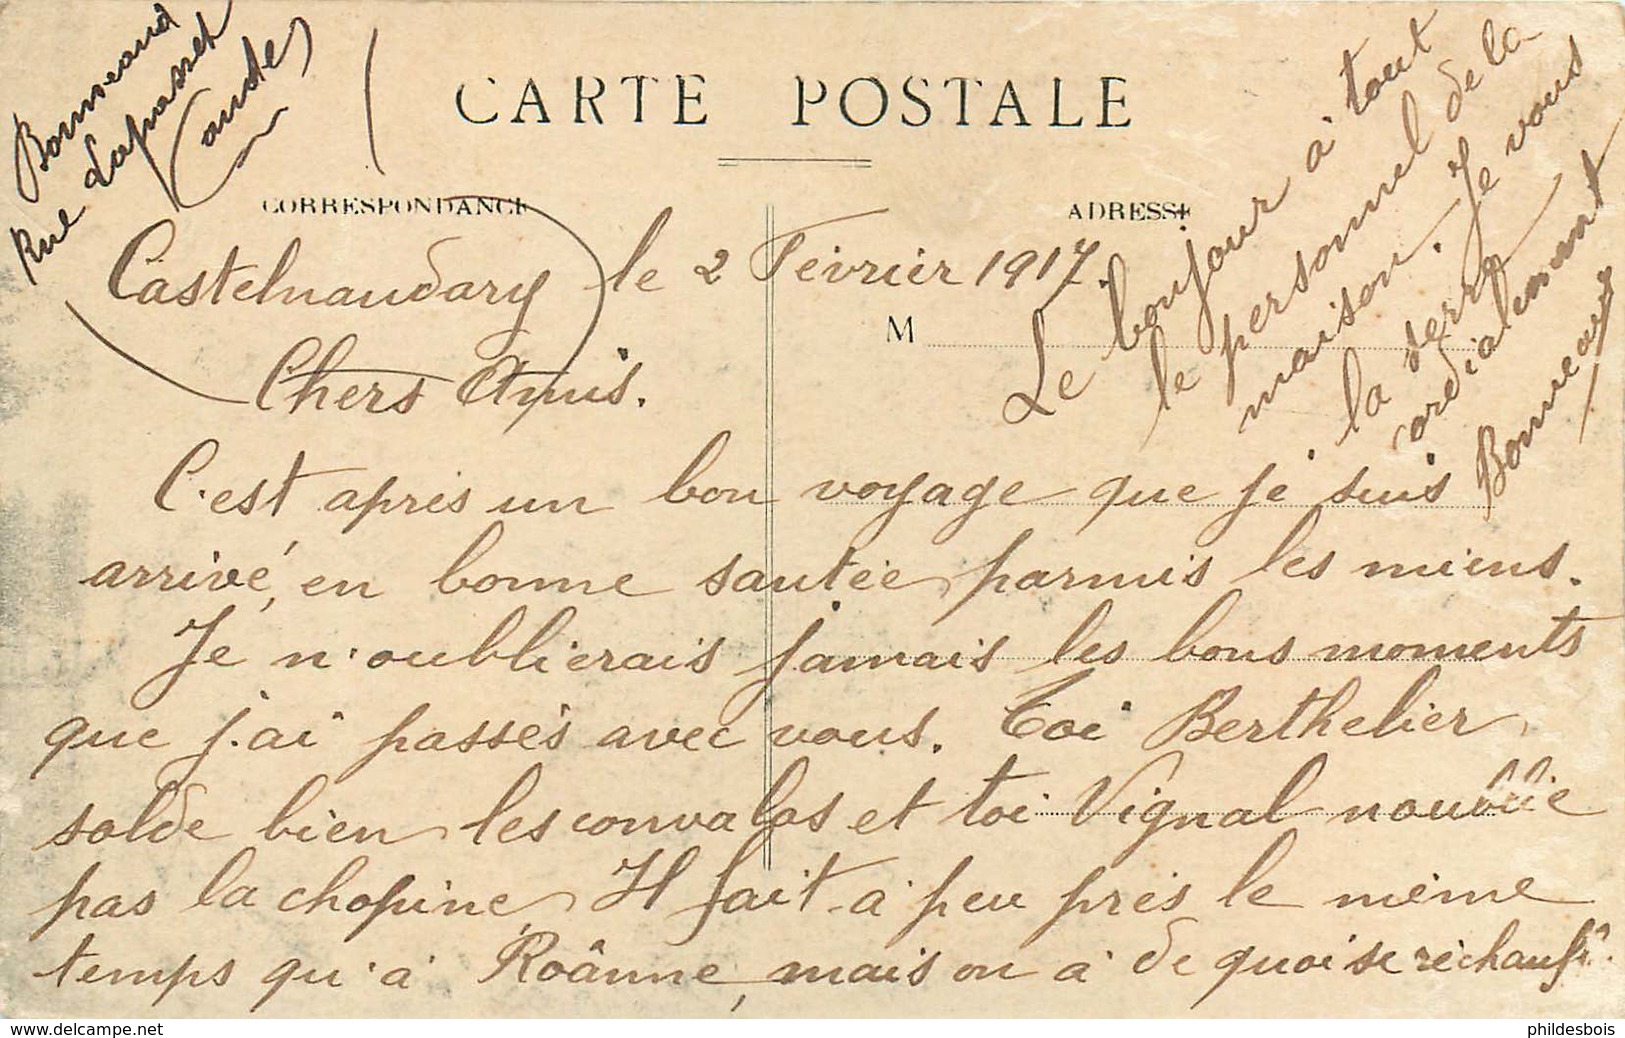 CARTE POSTALE
CORRESPONDANCE
ADRESSE
M
Rue Lapasset
Castelnaudary le 2 Février 1917.
Chers Amis.
C'est après un bon voyage que je suis
arrivé, en bonne santée, parmis les miens.
Je n'oublierais jamais les bons moments
que j'ai passés avec vous. Toi Berthelier,
solde bien les convalos et toi Vignal noublie
pas la chopine, Il fait à peu près le même
temps qu'à Roânne, mais on à de quoi se réchauf.
Le bonjour à tout
le personnel de la
maison. Je vous
la serre
cordialement
www.delcampe.net
phildesbois